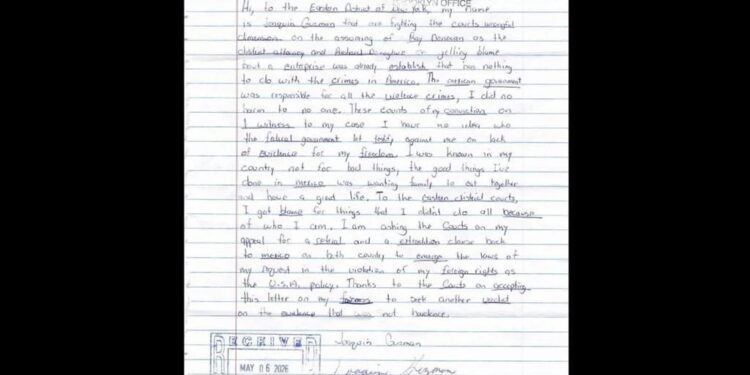 OOKLYN OFFICE
Hi, to the Eastern District of New York, my name
is Joaquin Guzman that are fighting the courts wrongful
on the assuming of Ray Donovan as the
district attorney and Richard Donoghue or yelling blame
bout a enterprise was already establish that has nothing
to do with the crimes in America. The mexican government
was responsible for all the violence crimes, I did no
harm to no one. These counts of my conviction on
1 witness to my case I have no idea who
the federal government let against me on lack
of evidence for my freedom. I was known in my
country not for bad things, the good things I've
done in mexico was wanting family to eat together
and have a great life. To the eastern district courts,
I got blame for things that I didn't do all because
of who I am. I am asking the Courts on my
appeal for a retrial and a extradition clause back
to mexico on both country to the laws of
my request in the violation of my foreign rights as
the U.S.A. policy. Thanks to the Courts on accepting
this letter on my to seek another
on the evidence that was not
RECEIVED
Joaquin Guzman
MAY 06 2026
Joaquin Guzman